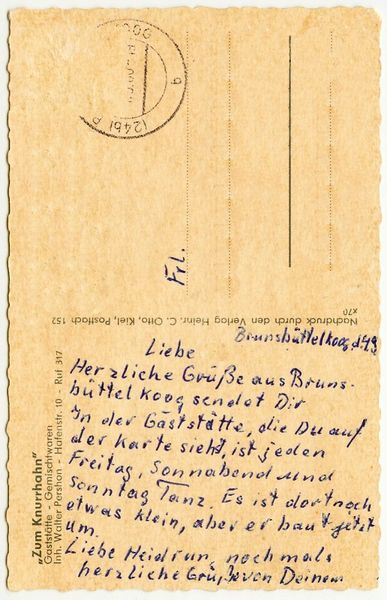 Frl.
(24b)
Nachdruck durch den Verlag Heinr. C. Otto, Kiel, Postfach 152
x70
"Zum Knurrhahn"
Gaststätte - Gemischtwaren
Inh. Walter Pershon - Hafenstr. 10 - Ruf 317
Brunsbüttelkoog, d.
Liebe
Herzliche Grüße aus Bruns-
büttel koog sendet Dir
In der Gaststätte, die Du auf
der Karte siehst, ist jeden
Freitag, Sonnabend und
Sonntag Tanz. Es ist dort noch
etwas klein, aber er baut jetzt
um.
Liebe Heidrun, nochmals
herzliche Grüße von Deinem